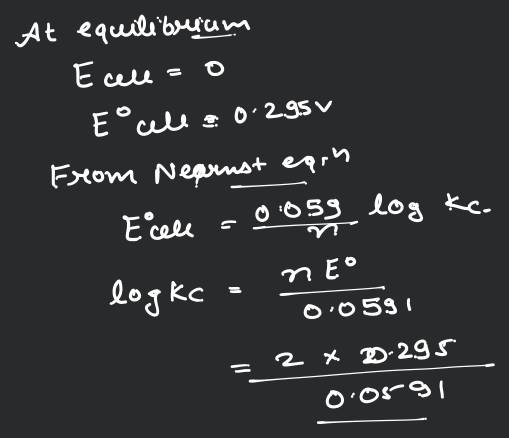 At equilibrium
E cell = 0
E° cell = 0.295V
From Nernst eqn
E°cell = 0.059/n log Kc.
log Kc = n E°/0.0591
= 2 x 0.295/0.0591